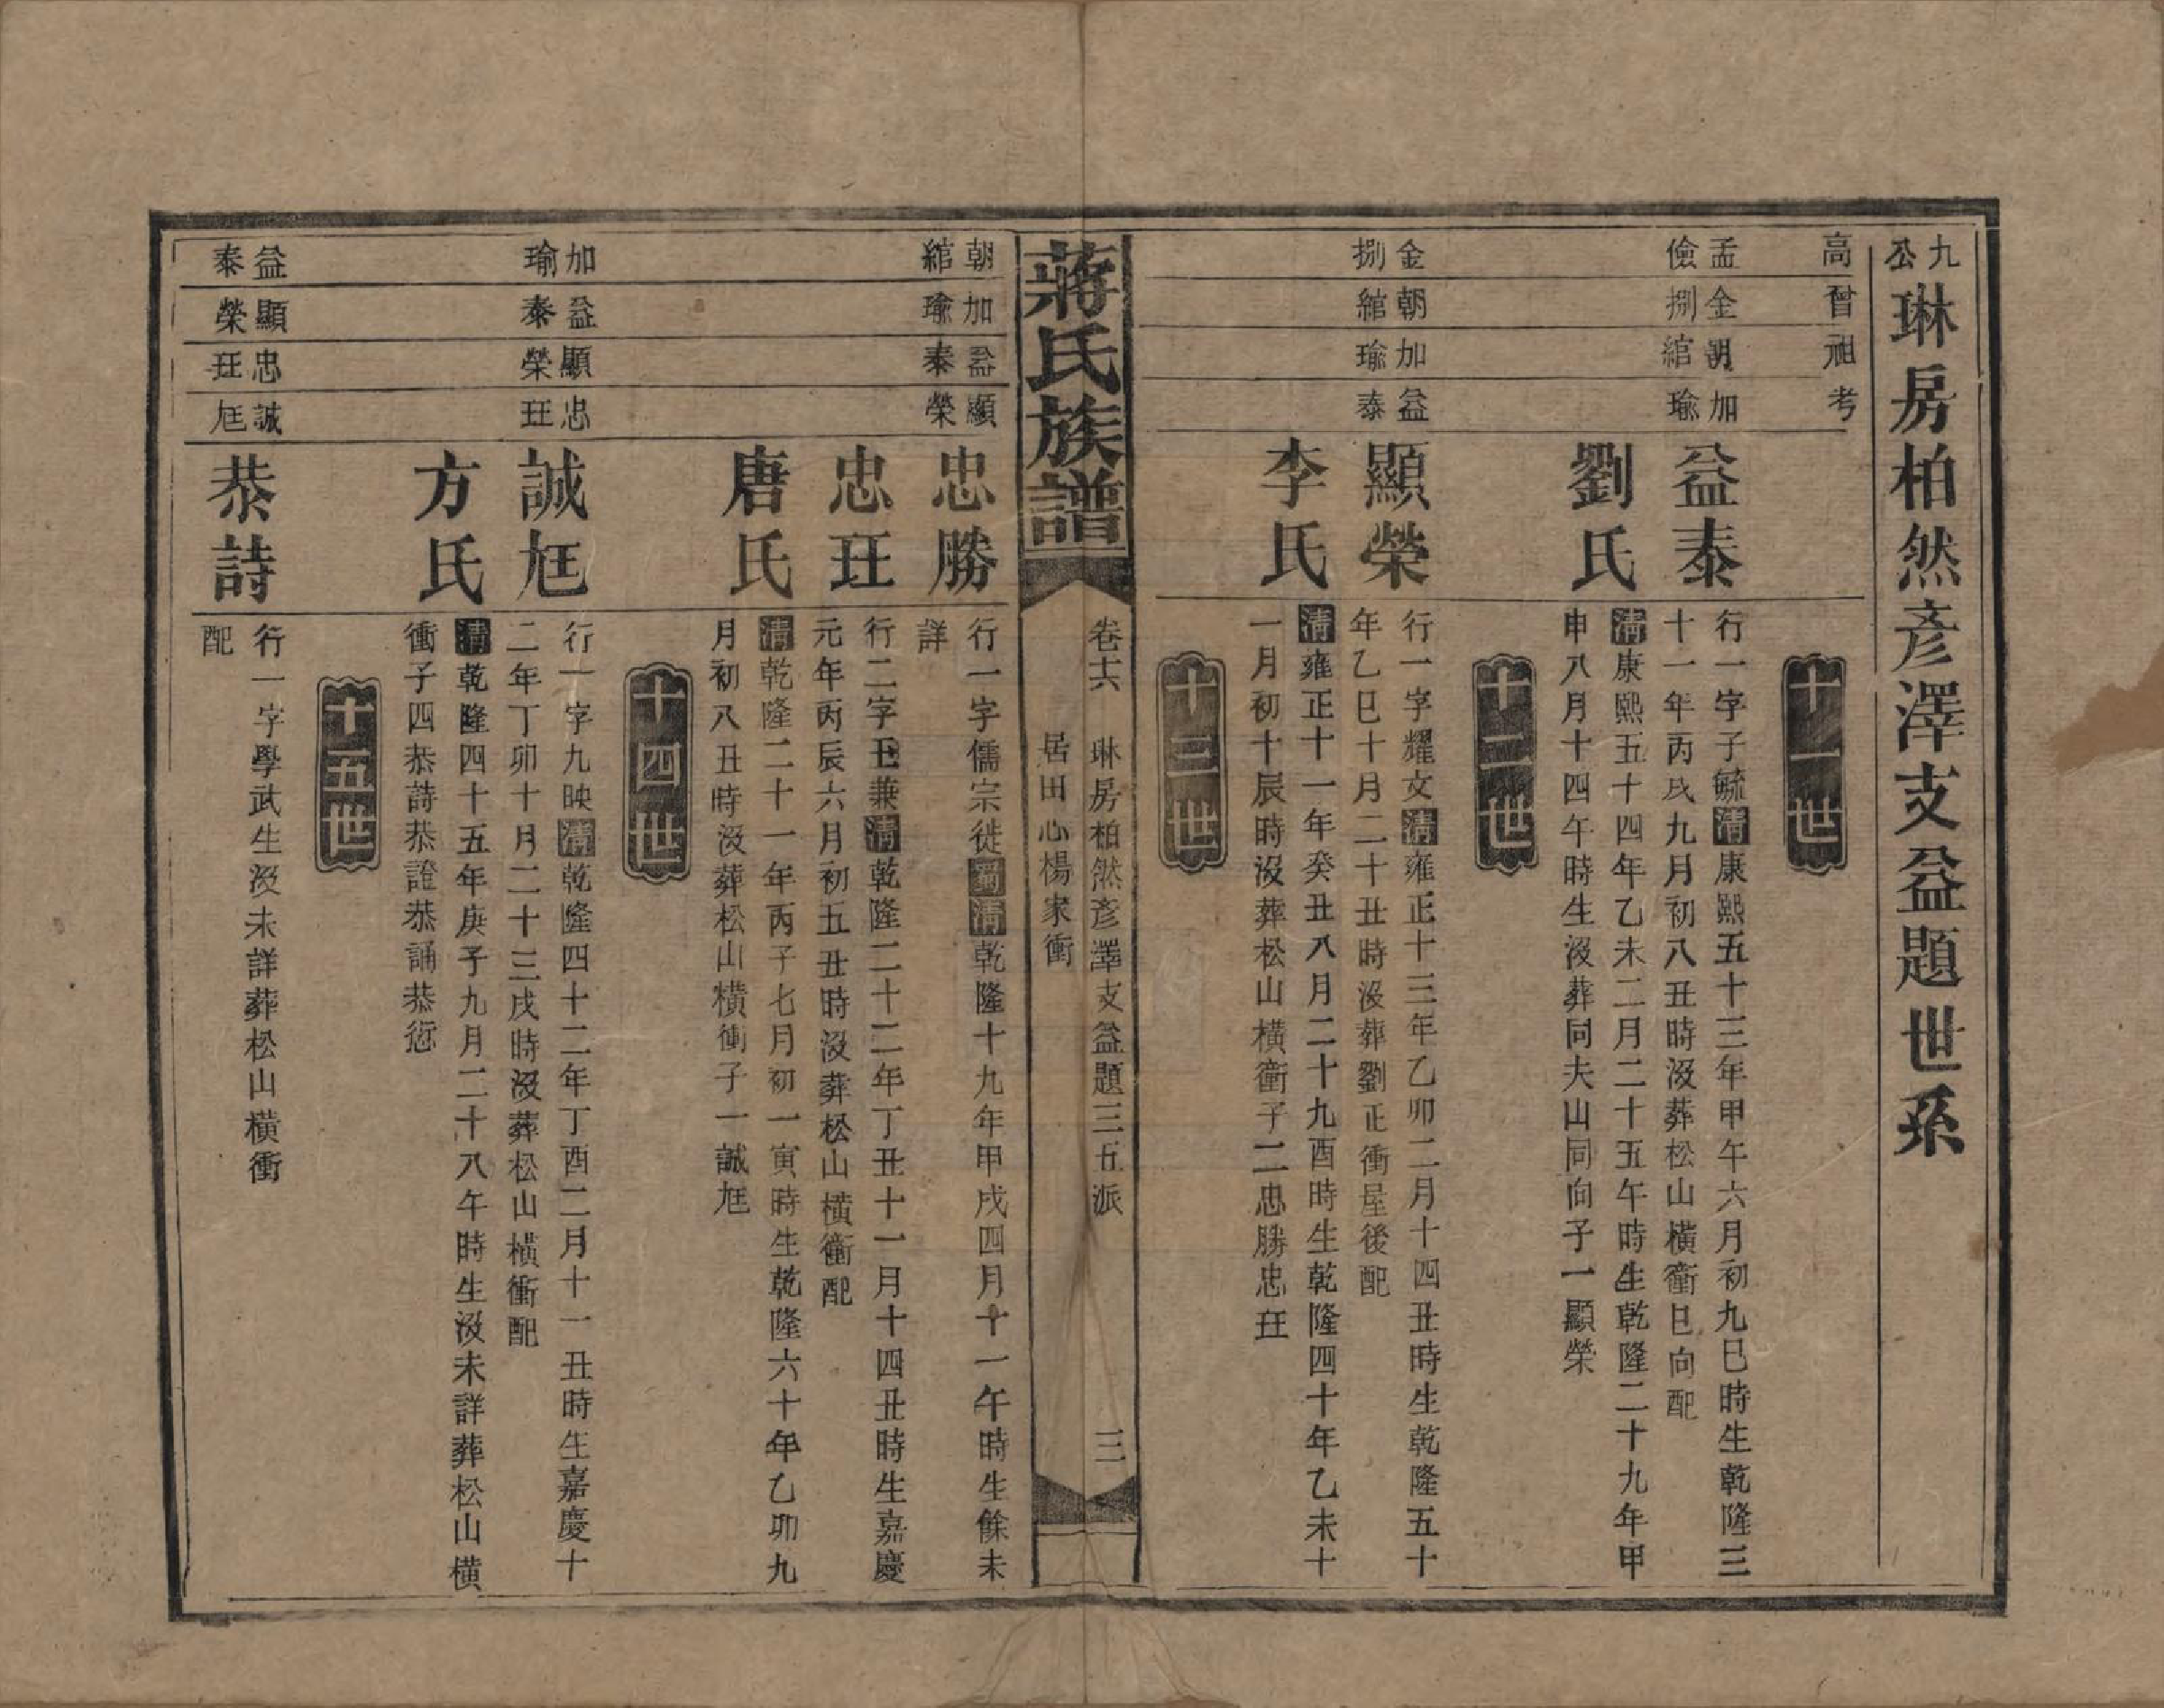 九公琳房柏然彥澤支益題世系
高曾祖考
十一世
孟儉
金捌
朝綰
加瑜
益泰
行一字子毓清康熙五十三年甲午六月初九巳時生乾隆三
十一年丙戌九月初八丑時沒葬松山橫衝巳向配
劉氏
清康熙五十四年乙未二月二十五午時生乾隆二十九年甲
申八月十四午時生沒葬同夫山同向子一顯榮
十二世
金捌
朝綰
加瑜
益泰
顯榮
行一字耀文清雍正十三年乙卯二月十四丑時生乾隆五十
年乙巳十月二十丑時沒葬劉正衝屋後配
李氏
清雍正十一年癸丑八月二十九酉時生乾隆四十年乙未十
一月初十辰時沒葬松山橫衝子二忠勝忠玨
十三世
蔣氏族譜
卷十六 琳房柏然彥澤支益題三五派 三
居田心楊家衝
朝綰
加瑜
益泰
顯榮
忠勝
行一字儒宗徙蜀清乾隆十九年甲戌四月十一午時生餘未
詳
忠玨
行二字玉兼清乾隆二十二年丁丑十一月十四丑時生嘉慶
元年丙辰六月初五丑時沒葬松山橫衝配
唐氏
清乾隆二十一年丙子七月初一寅時生乾隆六十年乙卯九
月初八丑時沒葬松山橫衝子一誠尪
十四世
加瑜
益泰
顯榮
忠玨
誠尪
行一字九映清乾隆四十二年丁酉二月十一丑時生嘉慶十
二年丁卯十月二十三戌時沒葬松山橫衝配
方氏
清乾隆四十五年庚子九月二十八午時生沒未詳葬松山橫
衝子四恭詩恭證恭誦恭愆
十五世
益泰
顯榮
忠玨
誠尪
恭詩
行一字學武生沒未詳葬松山橫衝
配